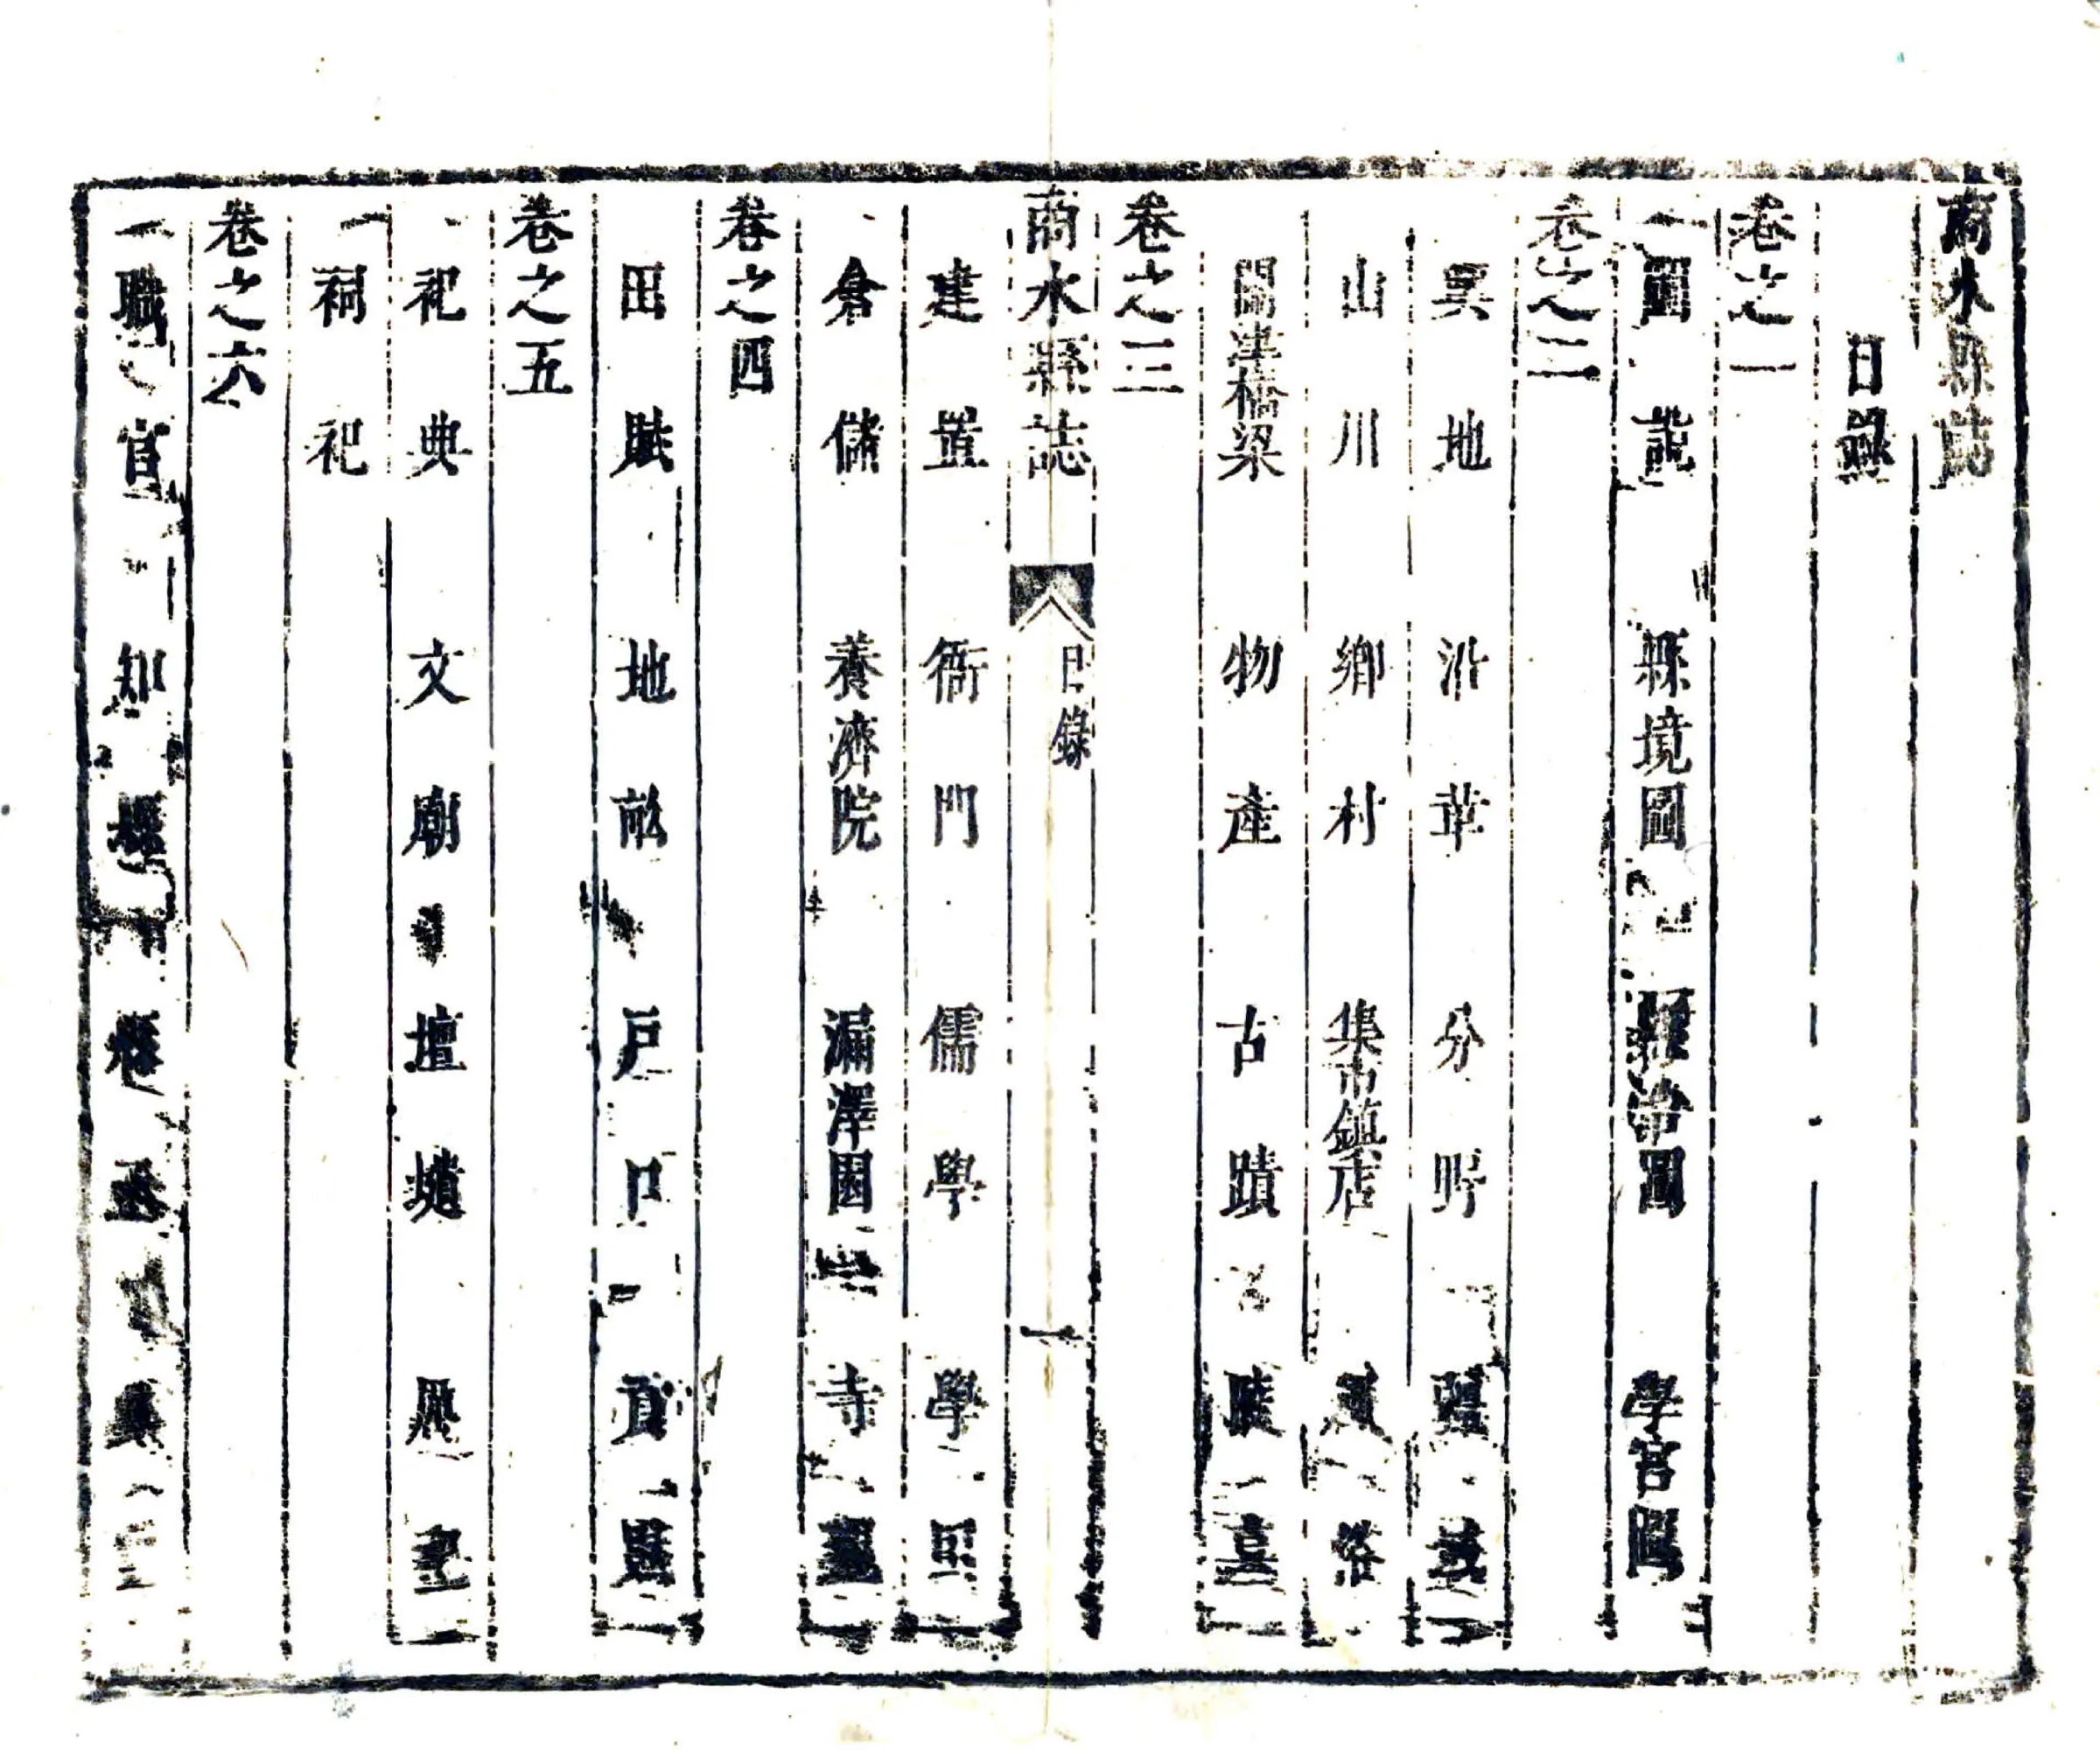 商水縣誌
目錄
卷之一
一圖說 縣境圖 縣治圖 學宮圖
卷之二
輿地 沿革 分野 疆域
山川 鄉村 集市鎮店 風俗
關津橋梁 物產 古蹟 陵墓
卷之三
商水縣誌 目錄 一
建置 衙門 儒學 學
倉儲 養濟院 漏澤園 寺
卷之四
田賦 地畝 戶口 貢賦
卷之五
祀典 文廟 壇壝
一祠祀
卷之六
一職官 知縣 縣丞